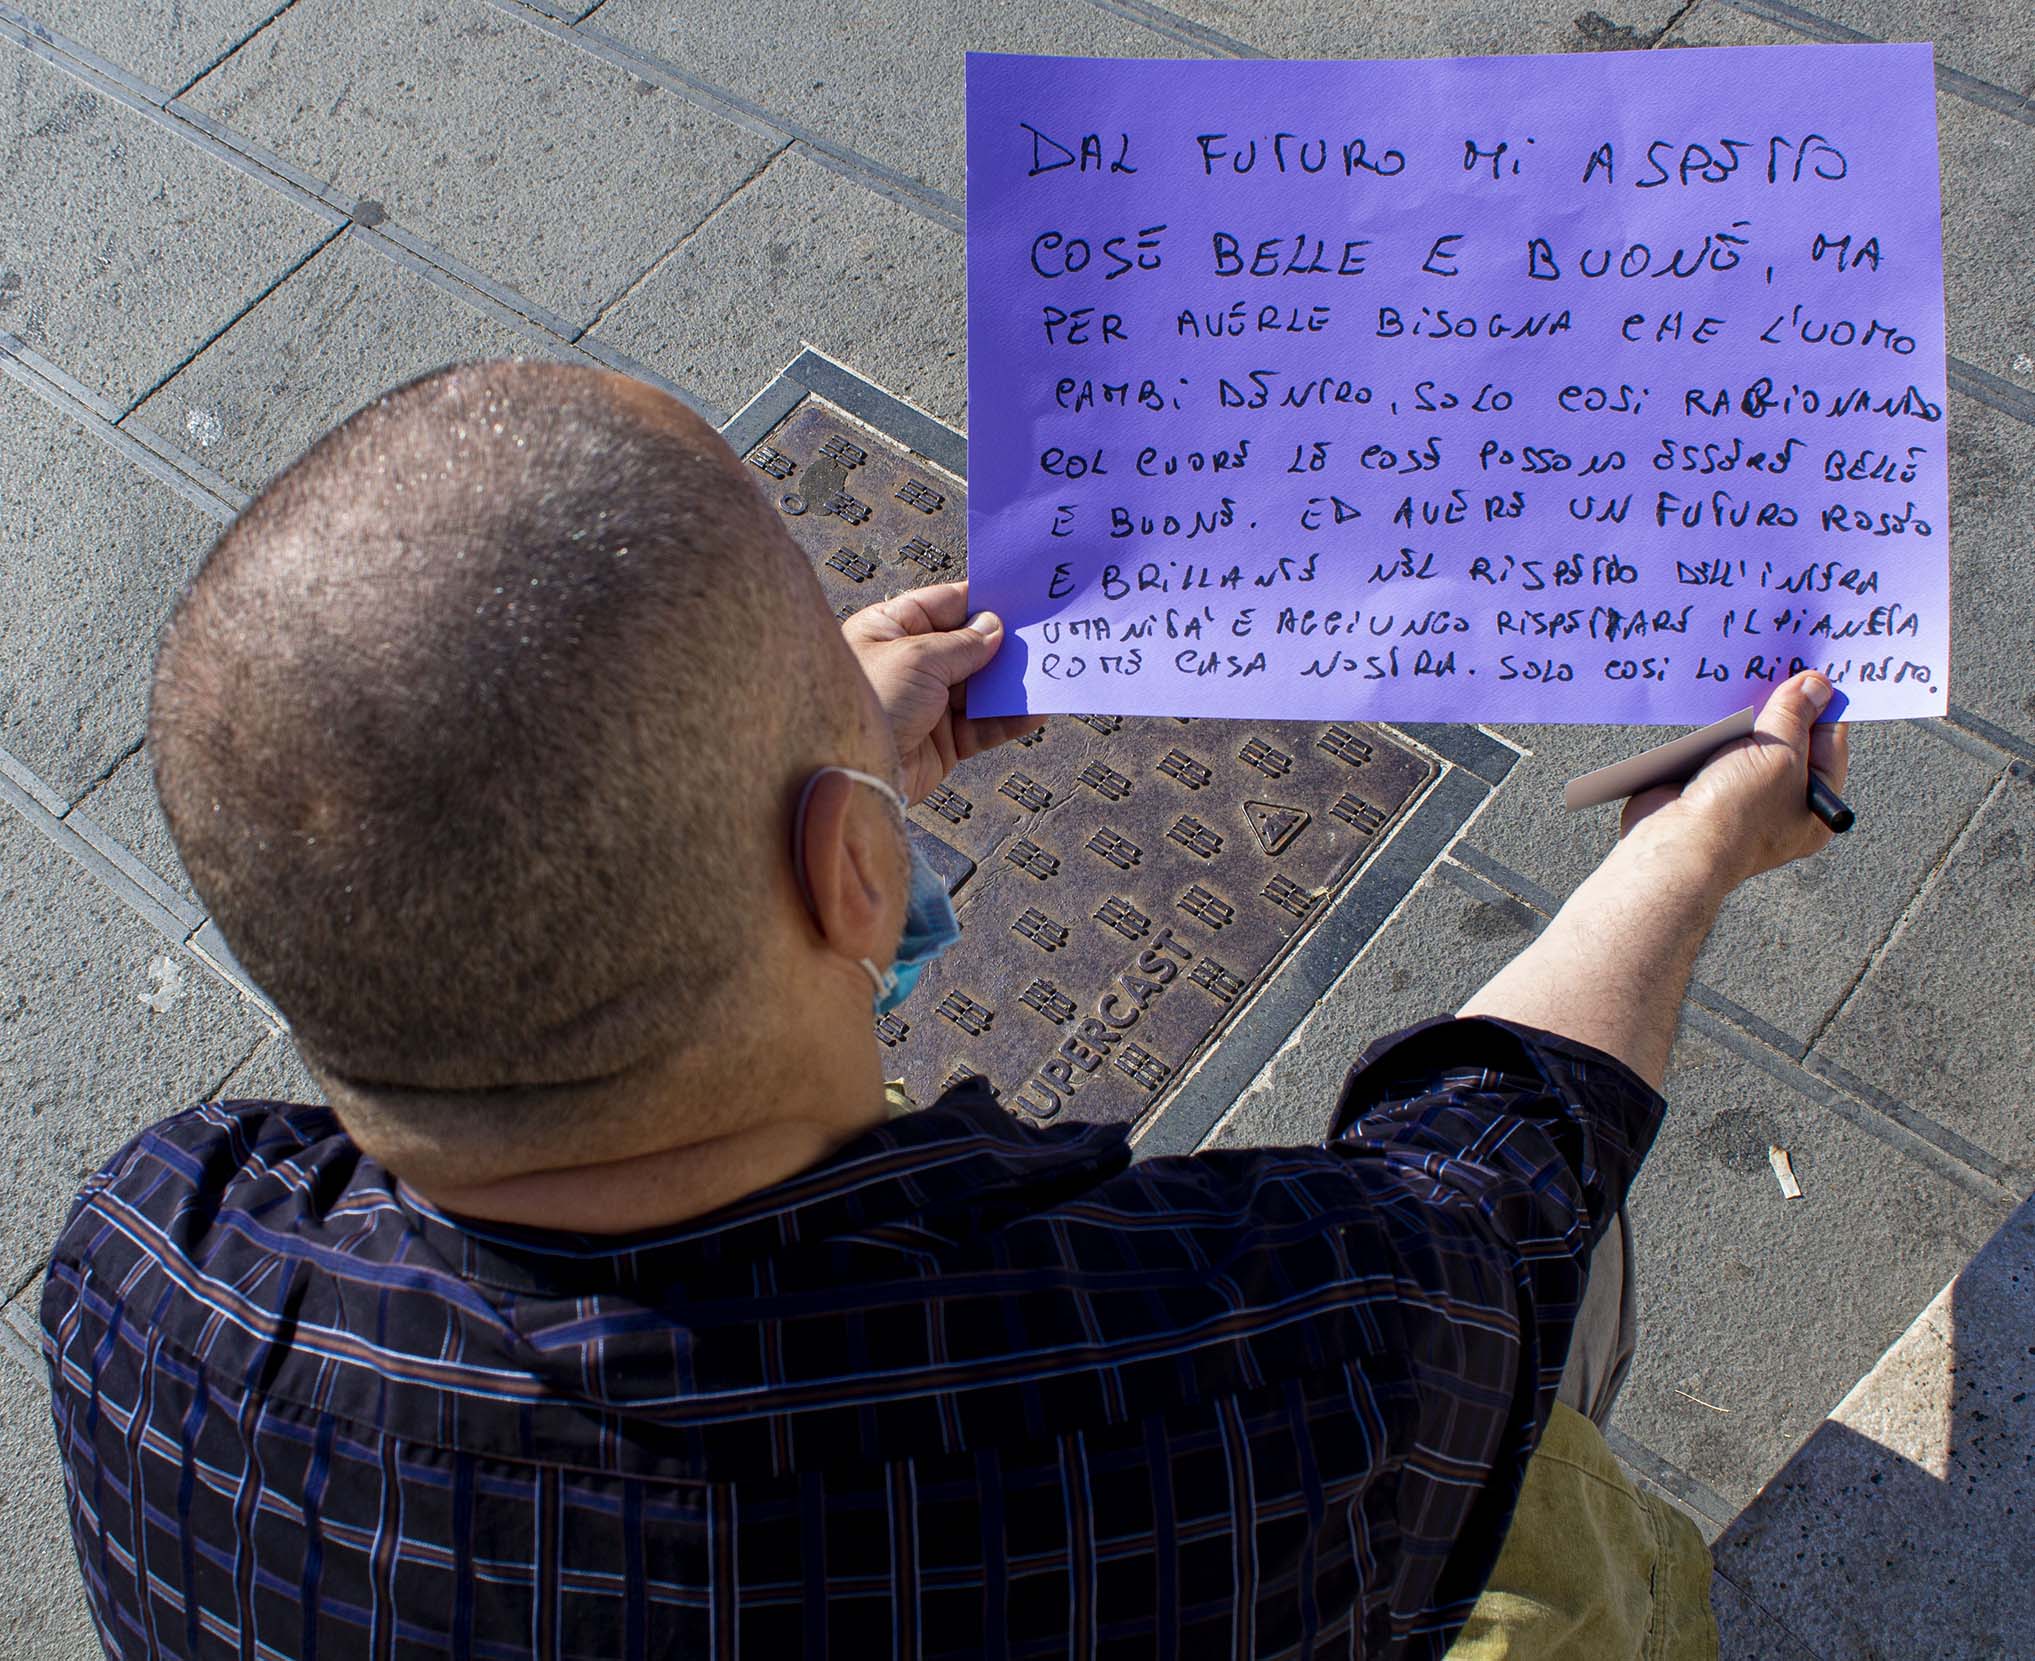 DAL FUTURO MI ASPETTO
COSE BELLE E BUONE, MA
PER AVERLE BISOGNA CHE L'UOMO
CAMBI DENTRO, SOLO COSI RAGIONANDO
COL CUORE LE COSE POSSONO ESSERE BELLE
E BUONE. ED AVERE UN FUTURO ROSEO
E BRILLANTE NEL RISPETTO DELL'INTERA
UMANITA' E AGGIUNGO RISPETTARE IL PIANETA
COME CASA NOSTRA. SOLO COSI LO
SUPERCAST